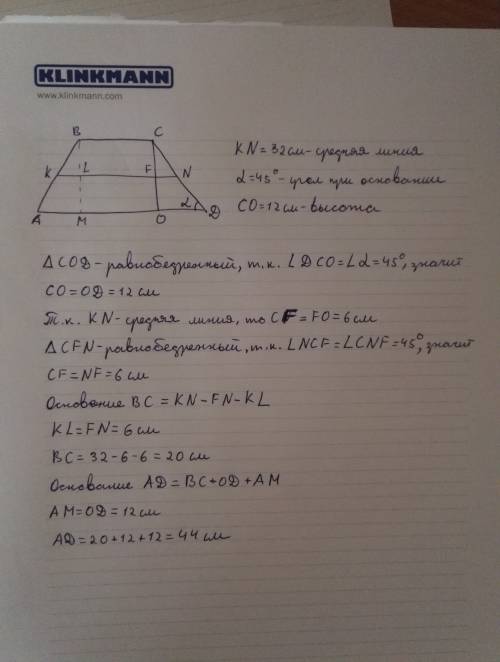 KLINKMANN
www.klinkmann.com
B C
K L F N
A M O α D
KN = 32 см - средняя линия
α = 45° - угол при основании
CO = 12 см - высота
Δ COD - равнобедренный, т.к. ∠DCO = ∠α = 45°, значит
CO = OD = 12 см
Т.к. KN - средняя линия, то CF = FO = 6 см
Δ CFN - равнобедренный, т.к. ∠NCF = ∠CNF = 45°, значит
CF = NF = 6 см
Основание BC = KN - FN - KL
KL = FN = 6 см
BC = 32 - 6 - 6 = 20 см
Основание AD = BC + OD + AM
AM = OD = 12 см
AD = 20 + 12 + 12 = 44 см